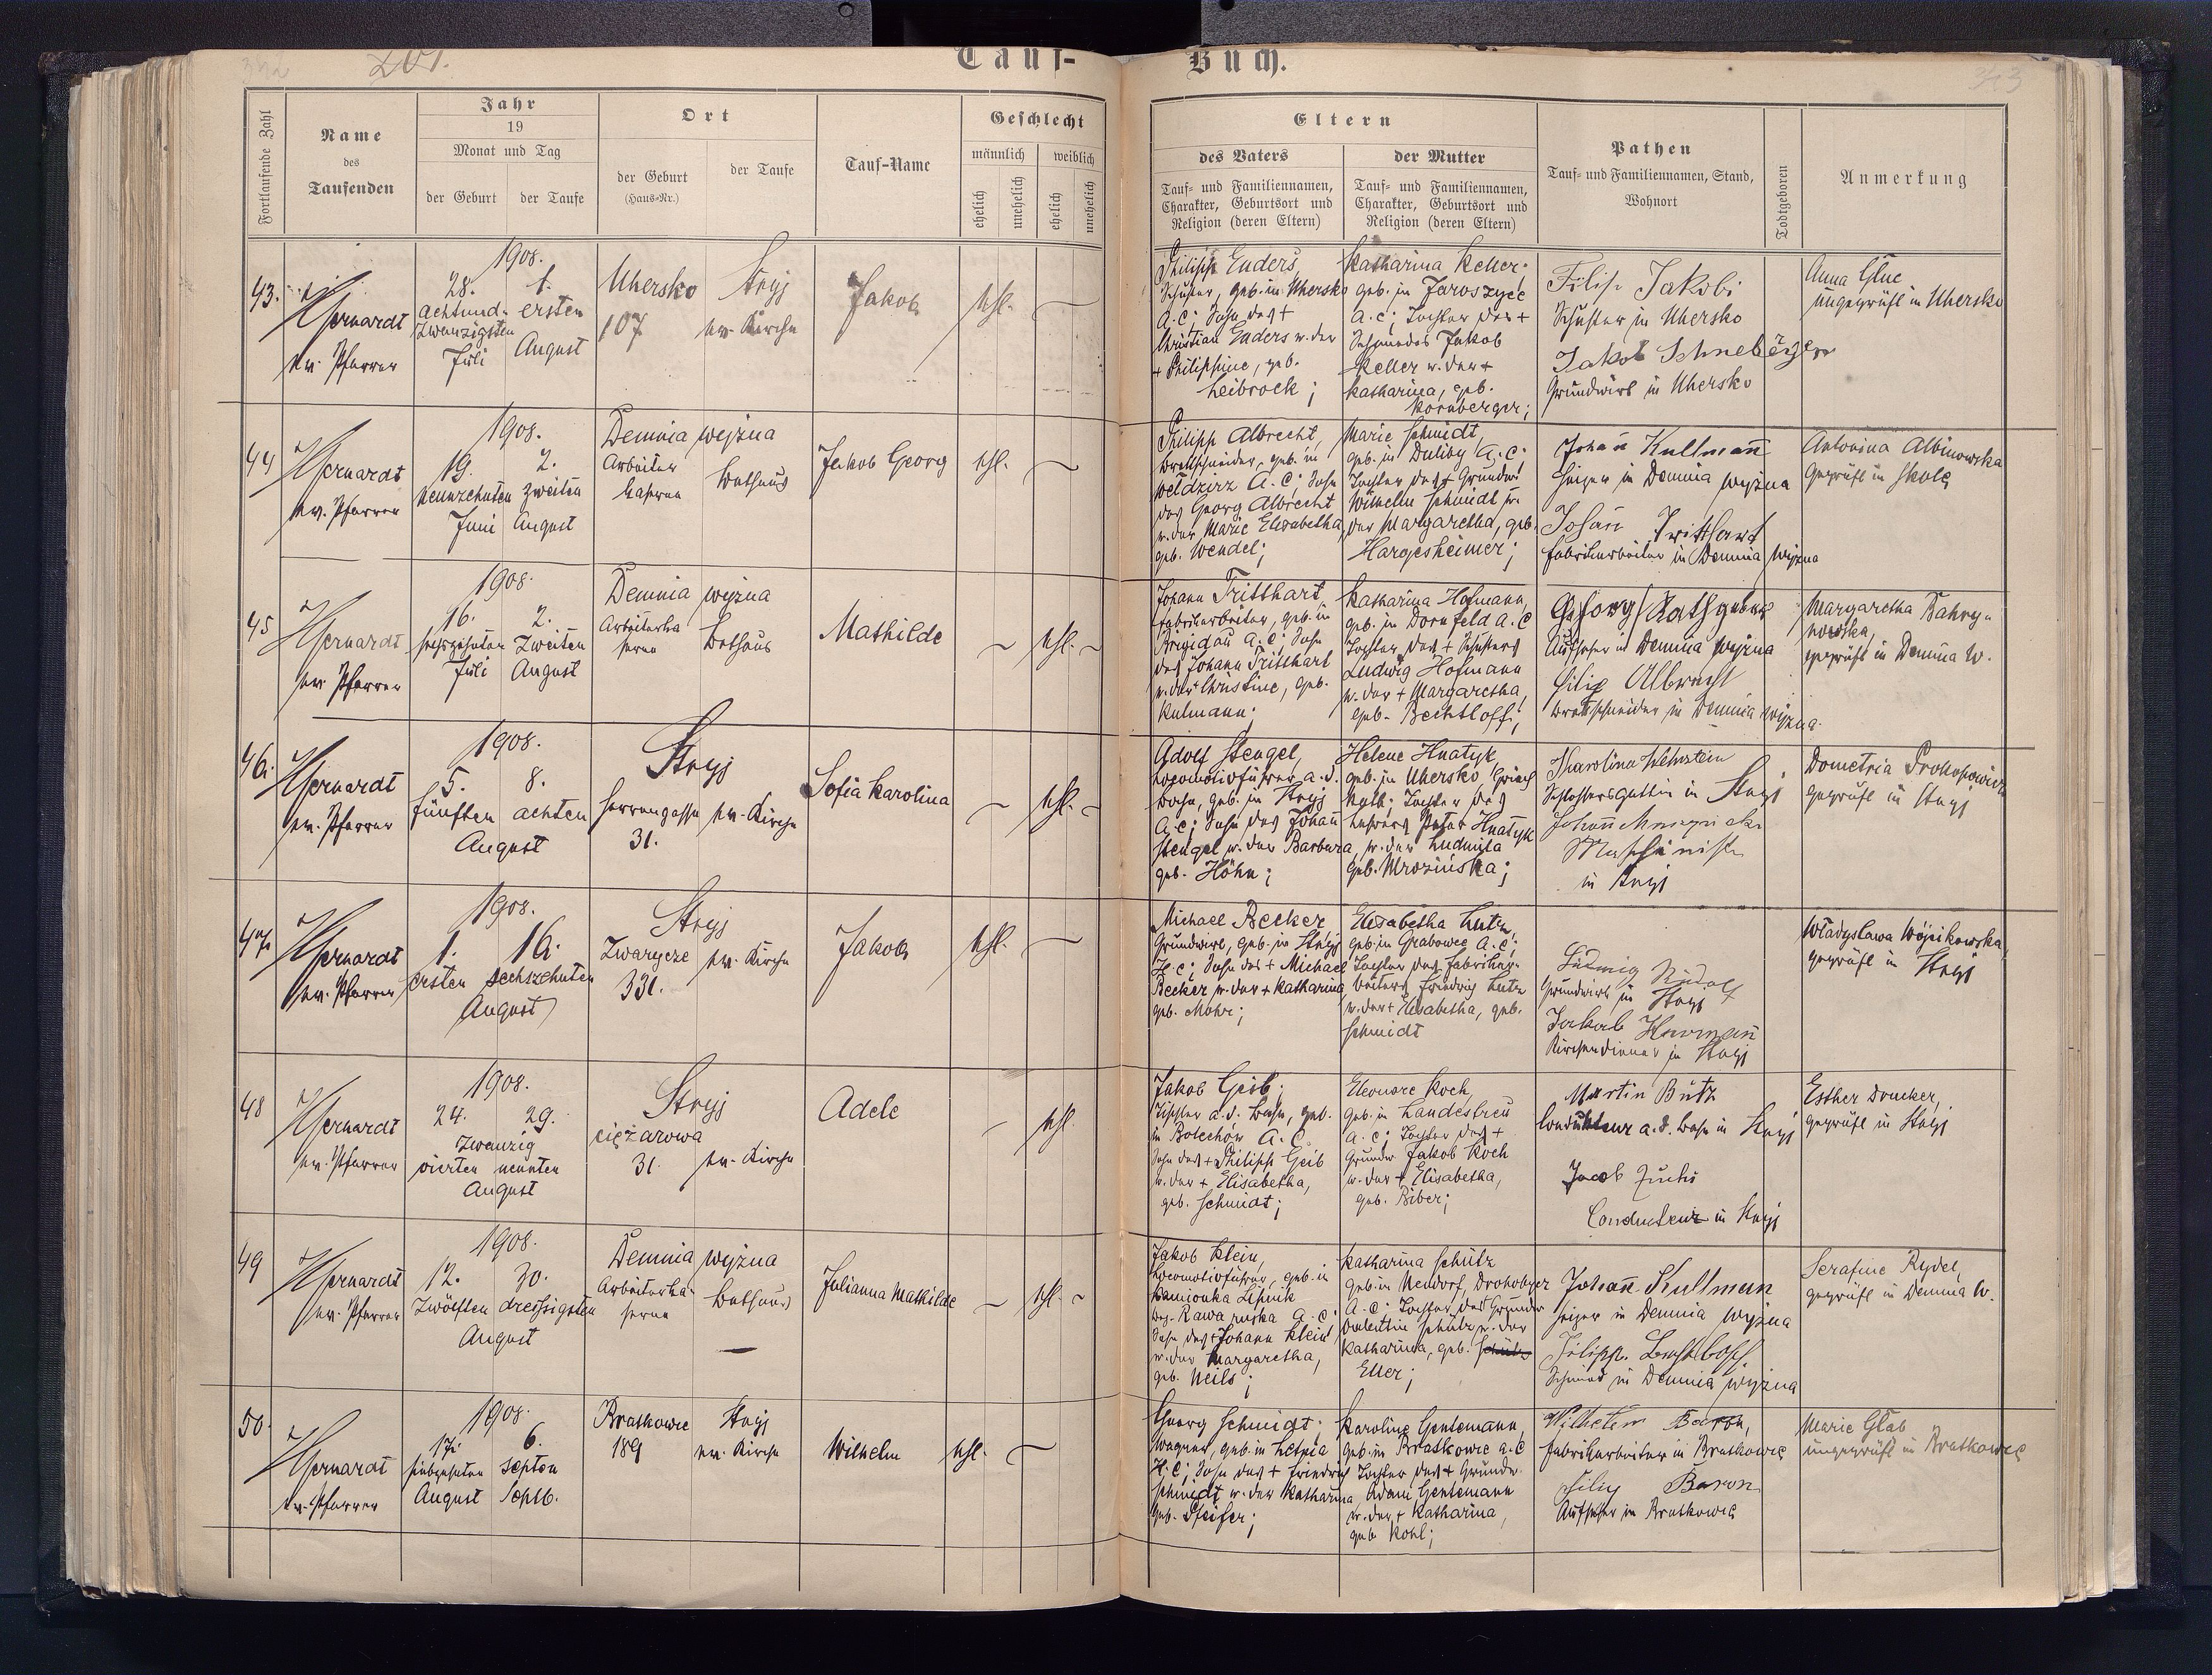 201.
Tauf-Buch.
Fortlaufende Zahl
Name
des
Taufenden
Jahr
19
Monat und Tag
der Geburt
der Taufe
Ort
der Geburt
(Haus-Nr.)
der Taufe
Tauf-Name
Geschlecht
männlich
weiblich
ehelich
unehelich
ehelich
unehelich
Eltern
des Vaters
der Mutter
Tauf- und Familiennamen,
Charakter, Geburtsort und
Religion (deren Eltern)
Tauf- und Familiennamen,
Charakter, Geburtsort und
Religion (deren Eltern)
Pathen
Tauf- und Familiennamen, Stand,
Wohnort
Todtgeboren
Anmerkung
43.
ev. Pfarrer
1908.
28. 1.
achtund- ersten
zwanzigsten
Juli August
Uhersko
107
Stryj
ev. Kirche
Jakob
ehl.
Philipp Enders,
Schuster, geb. in Uhersko
A.C; Sohn des +
Christian Enders u. der
+ Philippine, geb.
Leibrock;
Katharina Keller;
geb. in Jaroszyce
A.C; Tochter des +
Schmiedes Jakob
Keller u. der +
Katharina, geb.
Kornberger;
Filip Jakobi
Schuster in Uhersko
Grundwirt in Uhersko
Anna Gluc
ungeprüft in Uhersko
44
ev. Pfarrer
1908.
19. 2.
neunzehnten zweiten
Juni August
Demnia wyżna
Arbeiter
kaserne
Bethaus
Jakob Georg
ehl.
Philipp Albrecht,
Brettschneider, geb. in
Weldzirz A.C; Sohn
des Georg Albrecht
u. der Marie Elisabetha,
geb. Wendel;
Marie Schmidt,
geb. in Duliby A.C;
Tochter des + Grundw.
Wilhelm Schmidt u.
der Margaretha, geb.
Hargesheimer;
Johañ Kullmañ
Heizer in Demnia wyżna
Johañ Tritthart
Fabrikarbeiter in Demnia wyżna
Antonina Albinowska
geprüft in Skole
45
ev. Pfarrer
1908.
16. 2.
sechzehnten zweiten
Juli August
Demnia wyżna
Arbeiterka
serne
Bethaus
Mathilde
ehl.
Johann Tritthart
Fabrikarbeiter, geb. in
Brigidau A.C; Sohn
des Johann Tritthart
u. der Christine, geb.
Kulmann;
Katharina Hofmann,
geb. in Dornfeld A.C
Tochter des + Schusters
Ludwig Hofmann
u. der + Margaretha,
geb. Bechtloff;
Georg Rathgeber
Aufseher in Demnia wyżna
Filip Albrecht
Brettschneider in Demnia wyżna.
Margaretha
geprüft in Demnia W.
46.
ev. Pfarrer
1908.
5. 8.
fünften achten
August
Stryj
Herrengasse
31.
ev. Kirche
Sofia Karolina
ehl.
Adolf Stengel,
Locomotivführer a. d.
Bahn, geb. in Stryj
A.C; Sohn des Johañ
Stengel u. der Barbara,
geb. Höhn;
Helene Hnatyk,
geb. in Uhersko Griech
kath; Tochter des
Lehrers Peter Hnatyk
u. der Ludmiła
geb. Mrozińska;
Karolina
Schlossersgattin in Stryj
in Stryj
Dometria Prokopowicz
geprüft in Stryj
47.
ev. Pfarrer
1908.
1. 16.
ersten sechszehnten
August
Stryj
Zwarycze
331.
ev. Kirche
Jakob
ehl.
Michael Becker
Grundwirt, geb. in Stryj
H.C; Sohn des + Michael
Becker u. der + Katharina
geb. Mohr;
Elisabetha Lutz,
geb. in Grabowce A.C;
Tochter des Fabrikar-
beiters Friedrich Lutz
u. der + Elisabetha, geb.
Schmidt
Ludwig Rudolf
Grundwirt in Stryj
Jakob Hermañ
Kirchendiener in Stryj
geprüft in Stryj
48
ev. Pfarrer
1908.
24. 29.
zwanzig
vierten neunten
August
Stryj
ciężarowa
31.
ev. Kirche
Adele
ehl.
Jakob Geib;
Tischler a. d. Bahn, geb.
in Bolechów A.C.
Sohn des + Philipp Geib
u. der + Elisabetha,
geb. Schmidt;
Eleonore Koch,
geb. in Landestreu
A.C; Tochter des +
Grundw. Jakob Koch
u. der + Elisabetha,
geb. Biber;
Martin Butz
Conducteur a. d. Bahn in Stryj
Jacob Fuchs
Conducteur in Stryj
Esther Drucker,
geprüft in Stryj
49
ev. Pfarrer
1908.
12. 30.
zwölften dreissigsten
August
Demnia wyżna
Arbeiterka
serne
Bethaus
Julianna Mathilde
ehl.
Jakob Klein,
Locomotivführer, geb. in
Kamionka Lipnik
Bez. Rawa ruska A.C;
Sohn des + Johann Klein
u. der Margaretha,
geb. Neils;
Katharina Schütz
geb. in Neudorf, Drohobycz
A.C; Tochter des Grundw
Valentin Schütz u. der
Katharina, geb. Schütz
Eller;
Johañ Kullman
Heizer in Demnia wyżna
Filipp
Schmied in Demnia wyżna
Serafine Rydel,
geprüft in Demnia W.
50.
ev. Pfarrer
1908.
17. 6.
siebzehnten sechsten
August Septb.
Bratkowce
189
Stryj
ev. Kirche
Wilhelm
ehl.
Georg Schmidt;
Wagner, geb. in Letnia
H.C; Sohn des + Friedrich
Schmidt u. der Katharina
geb. Pfeifer;
Karoline Gentemann,
geb. in Bratkowce A.C
Tochter des + Grundw.
Adam Gentemann
u. der + Katharina,
geb. Kohl;
Wilhelm Baron,
Fabrikarbeiter in Bratkowce
Filip Baron
Aufseher in Bratkowce
Marie Głab
ungeprüft in Bratkowce